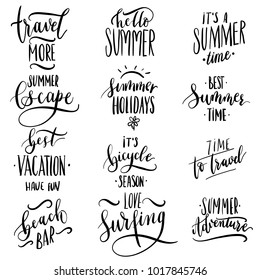 travel
MORE
hello
SUMMER
IT'S A
SUMMER
time
SUMMER
Escape
Summer
HOLIDAYS
BEST
Summer
TIME
best
VACATION
HAVE FUN
IT'S
bicycle
SEASON
TIME
to travel
beach
BAR
LOVE
Surfing
SUMMER
Adventure
shutterstock.com · 1017845746